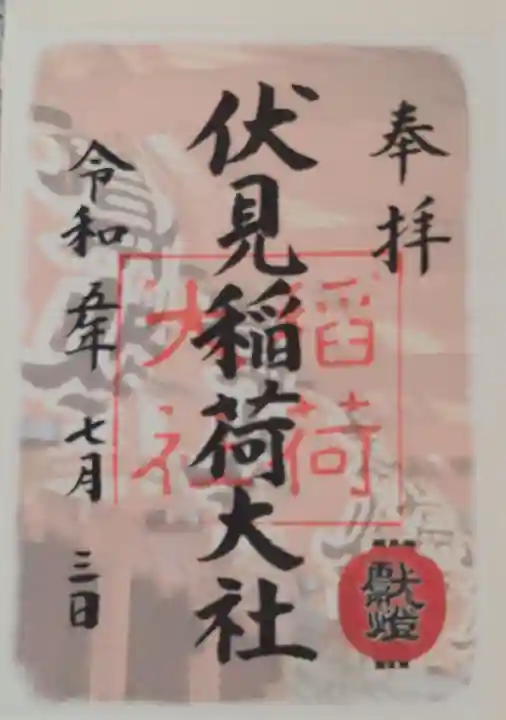 奉拝
伏見稲荷大社
稲荷
大社
令和五年七月三日
献燈